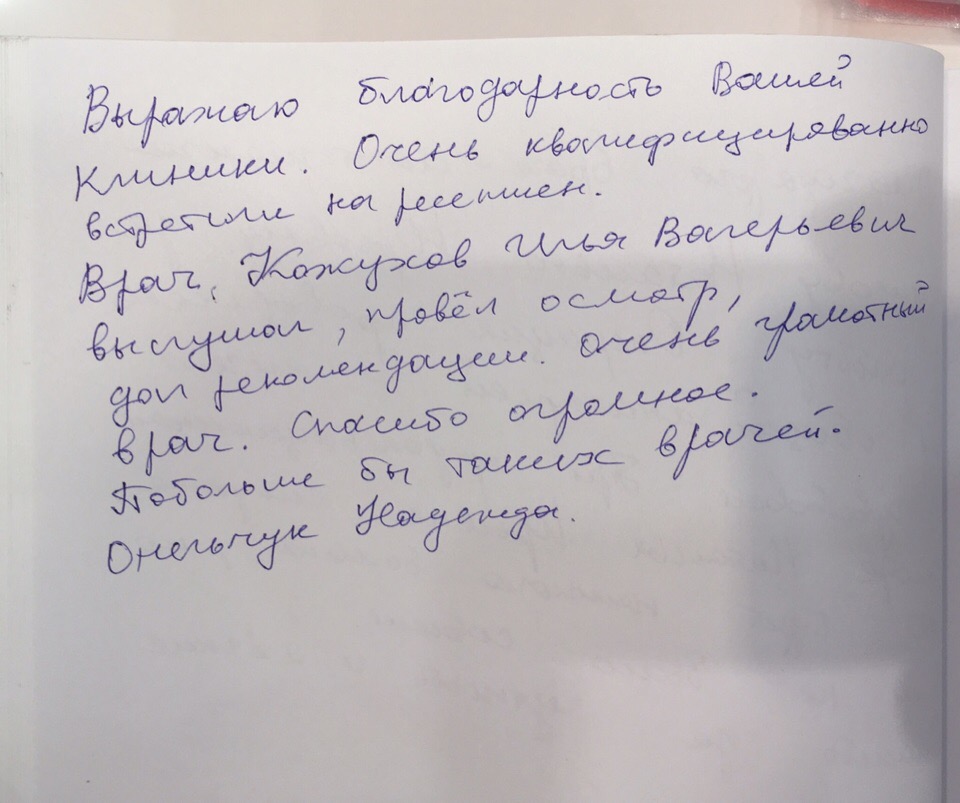 Выражаю благодарность Вашей
клиники. Очень квалифицированно
встретили на ресепшен.
Врач, Кожухов Илья Валерьевич
выслушал, провёл осмотр,
дал рекомендации. Очень грамотный
врач. Спасибо огромное.
Побольше бы таких врачей.
Онельчук Надежда.